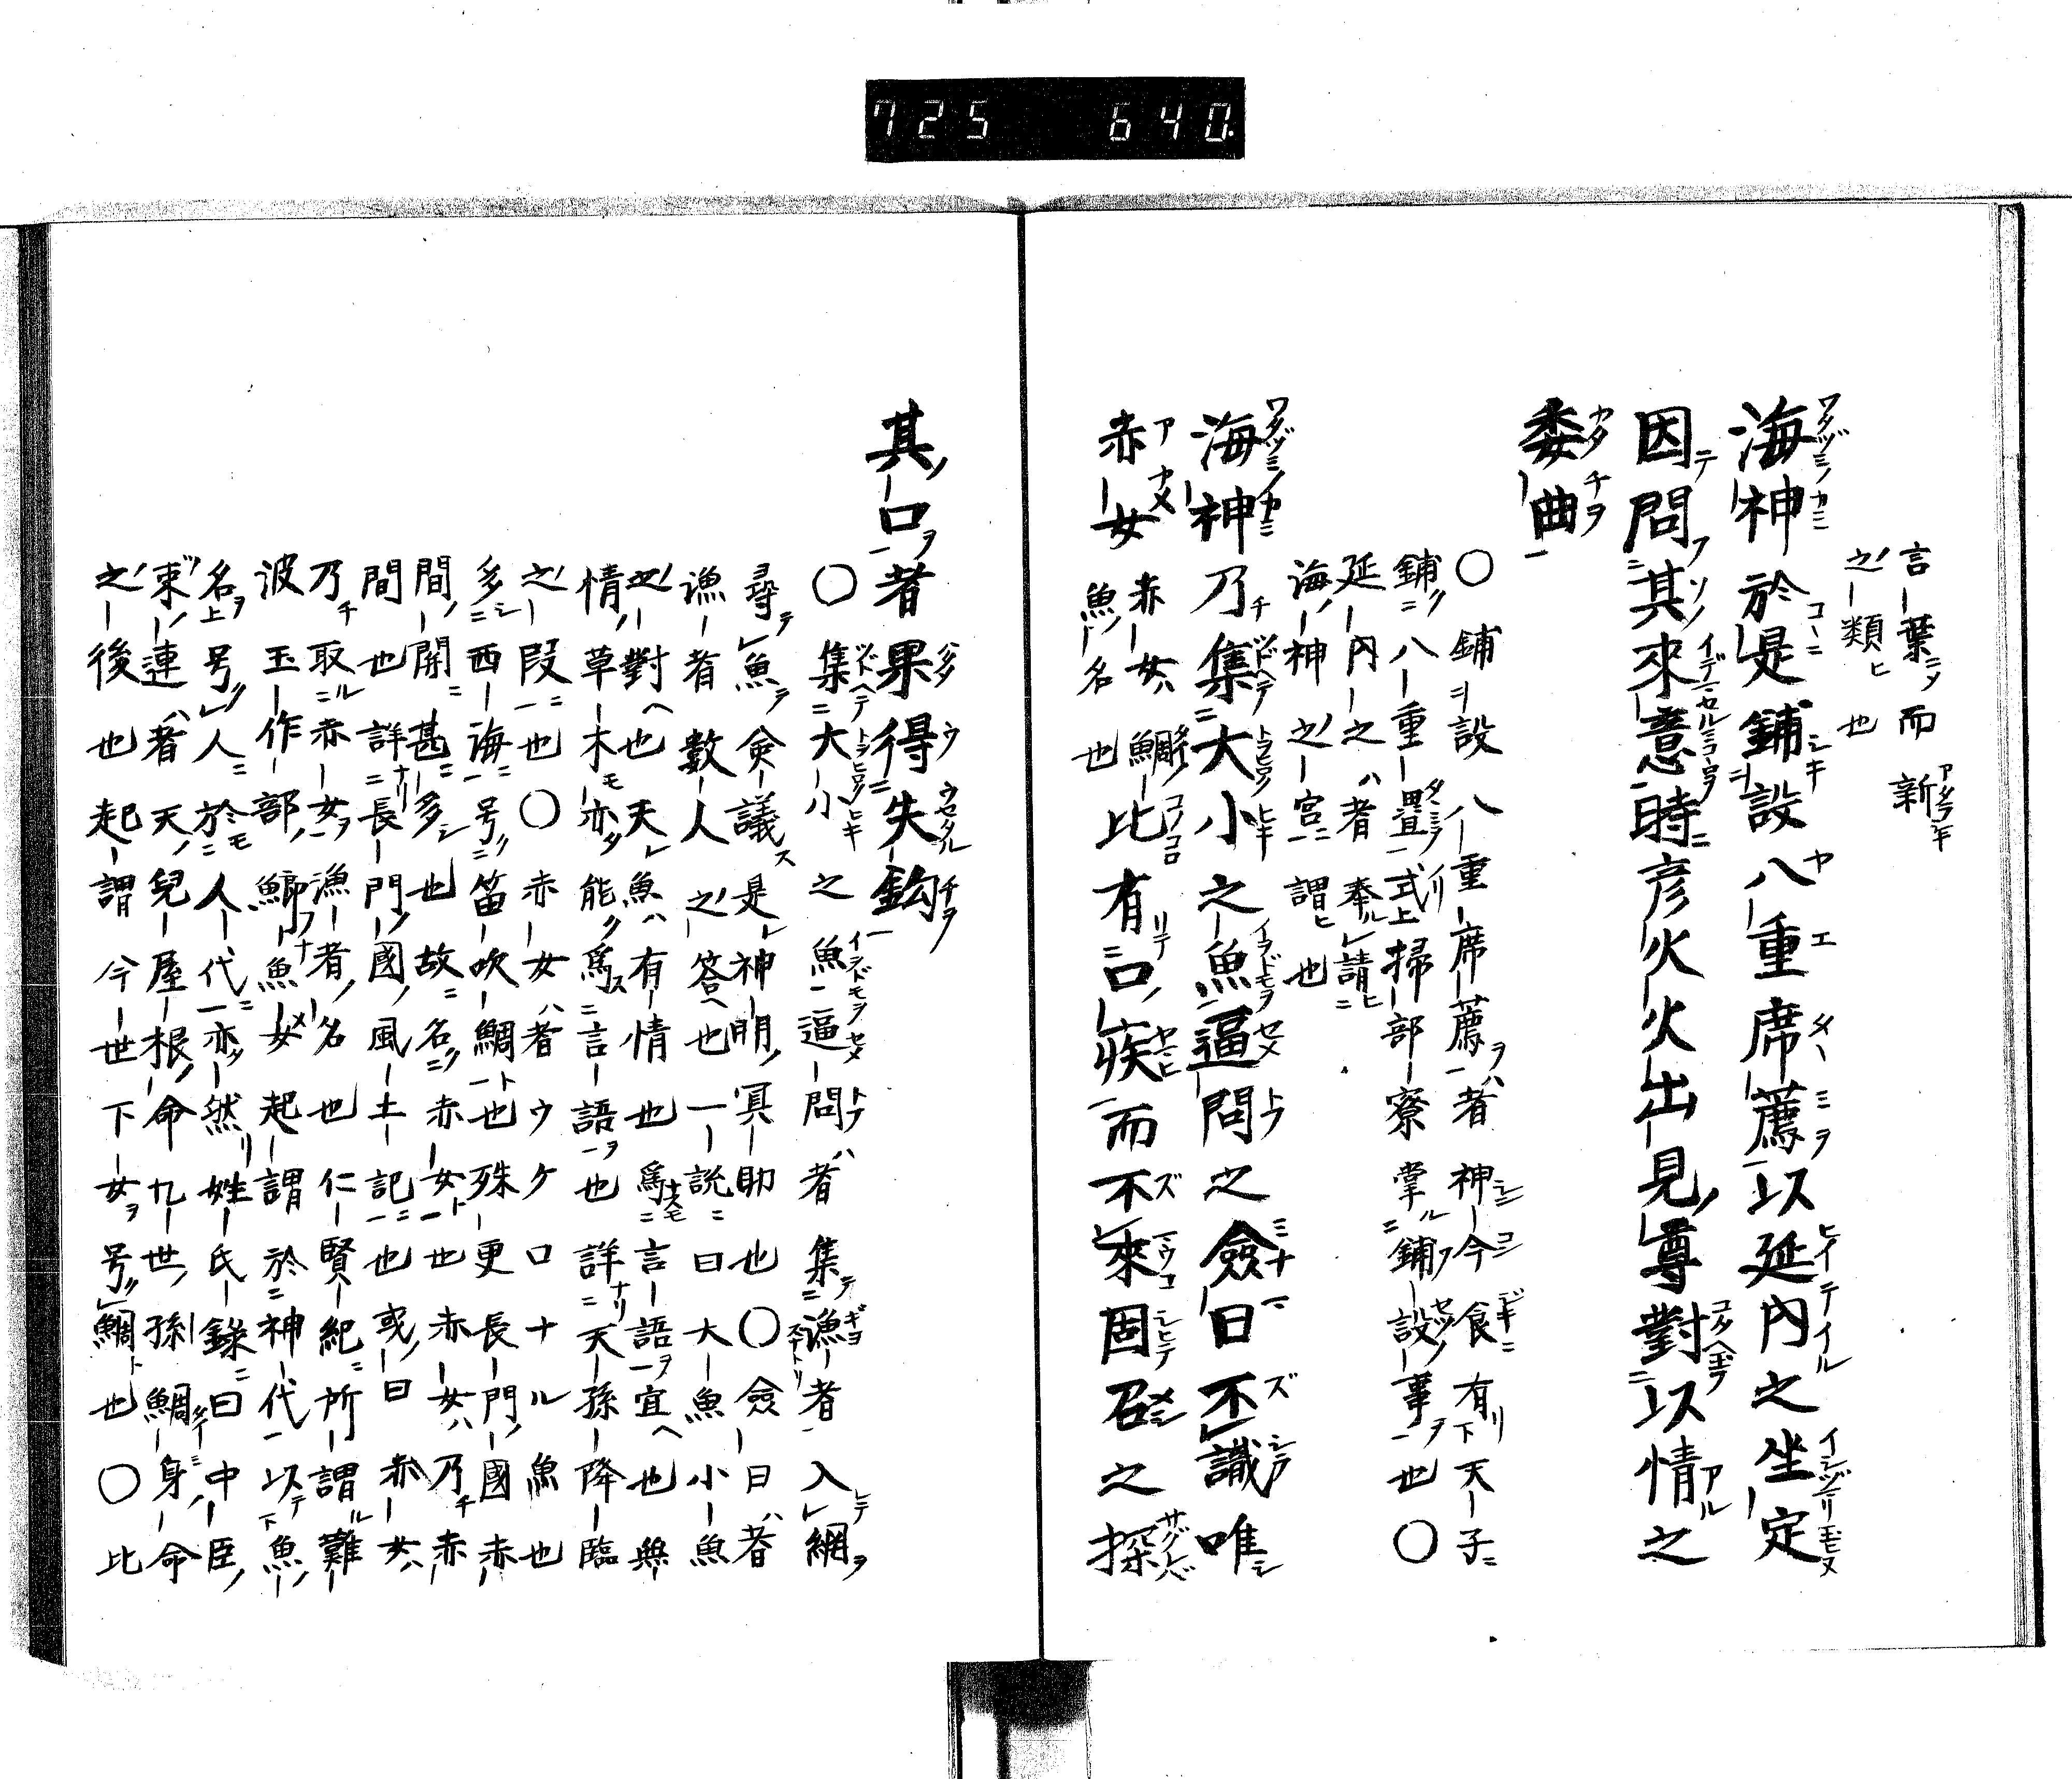 725 640.
言葉而新
之類也
海神於是鋪設八重席薦以延内之坐定
因問其來意時彦火火出見尊對以情之
委曲
○鋪設八重席薦者神今食有天子
鋪八重疊式掃部寮掌鋪設事也○
延内之者奉請
海神之宮謂也
海神乃集大小之魚逼問之僉曰不識唯
赤女赤女鯛魚名也比有口疾而不來固召之探
其口者果得失鈎
○集大小之魚逼問者集漁者入網
尋魚僉議是神明冥助也○僉曰者
漁者數人之答也一說曰大魚小魚
之對也天魚有情也爲言語宜也與
情草木亦能爲言語也詳天孫降臨
之段也○赤女者ウケロナル魚也
多西海号笛吹鯛也殊更長門國赤
間開甚多也故名赤女也赤女乃赤
間也詳長門國風土記也或曰赤女
乃取赤女漁者名也仁賢紀所謂難
波玉作部鯽魚女起謂於神代以魚
名号人於人代亦然姓氏錄曰中臣
束連者天兒屋根命九世孫鯛身命
之後也起謂今世下女号鯛也○比